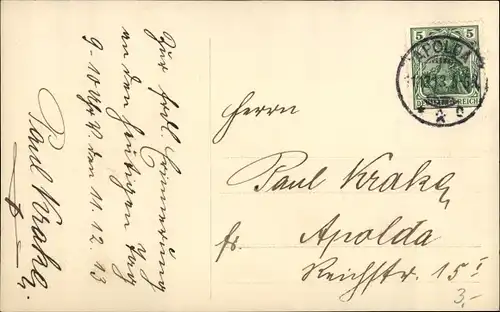 Zur frdl. Erinnerung
an den heutigen Tag
9-10 Uhr den 11.12.13
Paul Krake
5 5
APOLDA
DEUTSCHES REICH
Herrn
Paul Krake
Apolda
Reichstr. 15 I
3,-